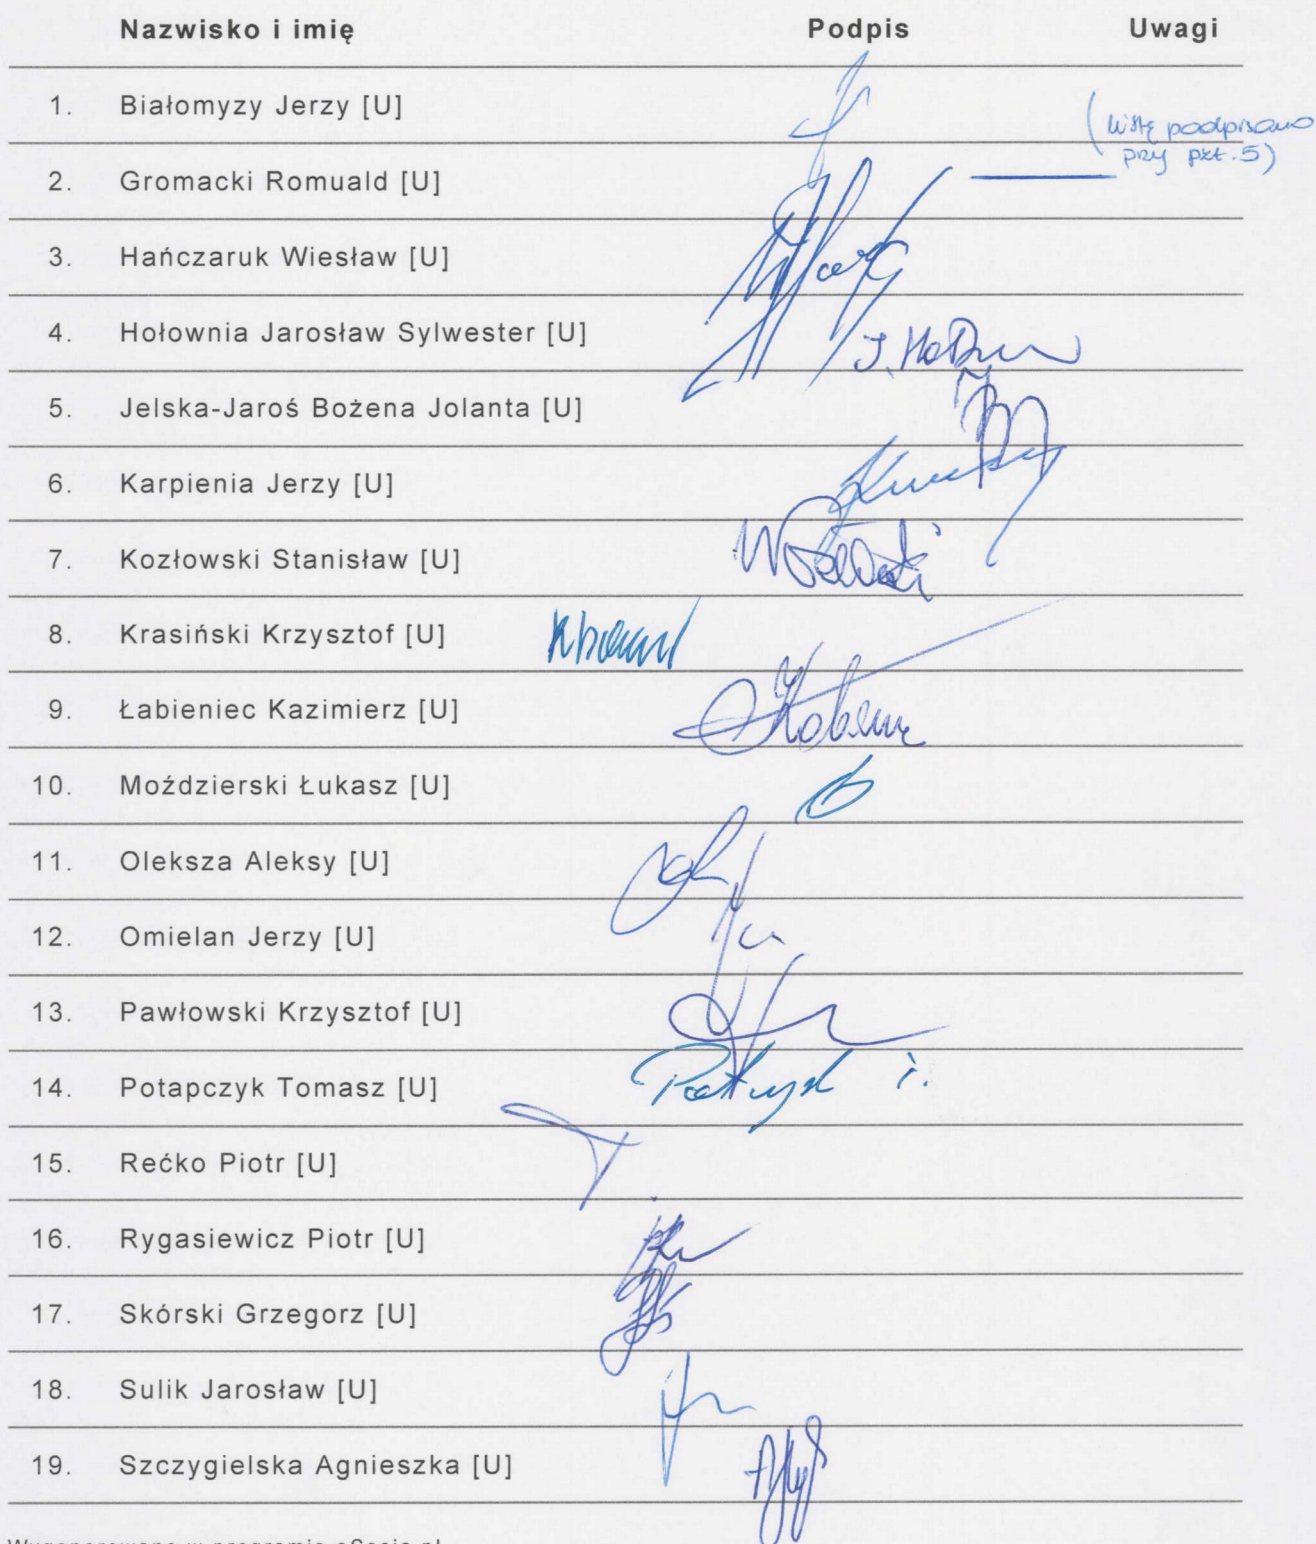 Nazwisko i imię Podpis Uwagi
1. Białomyzy Jerzy [U]
(listę podpisano
przy pkt. 5)
2. Gromacki Romuald [U]
3. Hańczaruk Wiesław [U]
4. Hołownia Jarosław Sylwester [U]
5. Jelska-Jaroś Bożena Jolanta [U]
6. Karpienia Jerzy [U]
7. Kozłowski Stanisław [U]
8. Krasiński Krzysztof [U]
9. Łabieniec Kazimierz [U]
10. Moździerski Łukasz [U]
11. Oleksza Aleksy [U]
12. Omielan Jerzy [U]
13. Pawłowski Krzysztof [U]
14. Potapczyk Tomasz [U]
15. Rećko Piotr [U]
16. Rygasiewicz Piotr [U]
17. Skórski Grzegorz [U]
18. Sulik Jarosław [U]
19. Szczygielska Agnieszka [U]
Wygenerowano w programie eSesja.pl